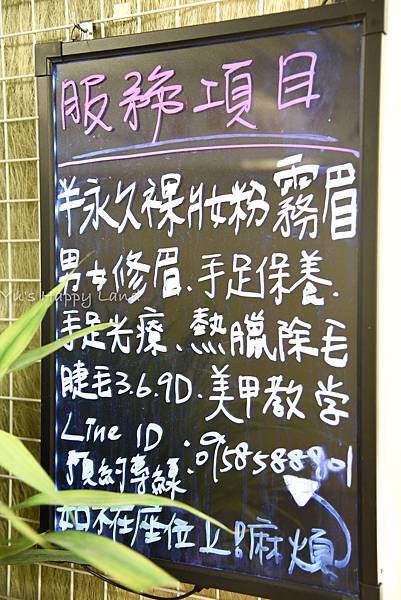 服務項目
半永久裸妝粉霧眉
男女修眉、手足保養、
手足光療、熱臘除毛
睫毛3.6.9D.美甲教学
Line ID:
預約專線:0958588801
如不在座位上!麻煩
Yu's Happy Land